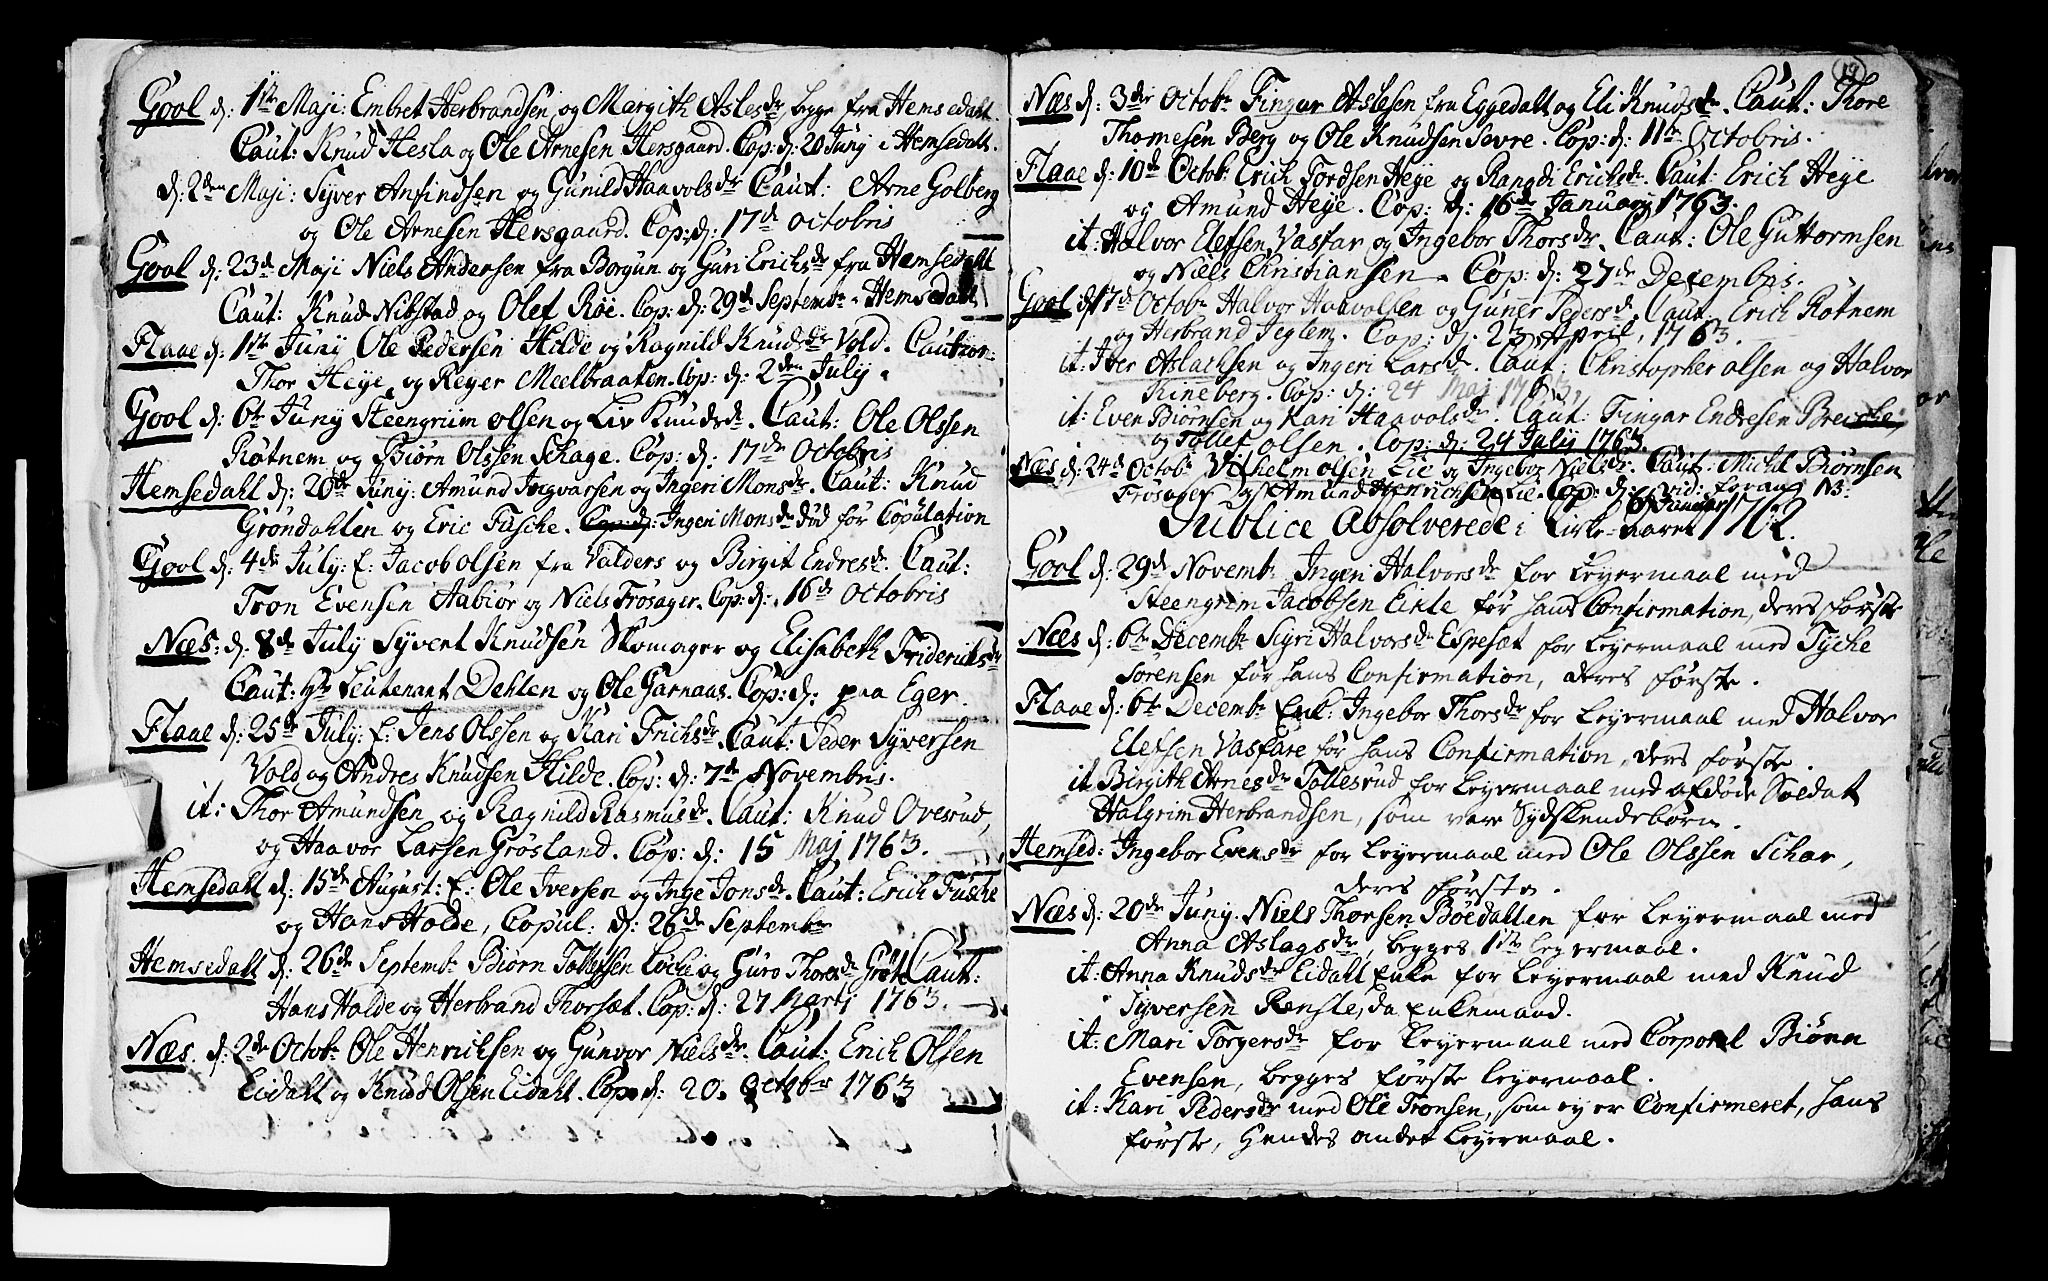 Gool d: 1ste Maji: Embret Herbrandsen og Margith Aslesdr begge fra Hemsedahl.
Caut: Knud Hesla og Ole Arnesen Hersgaard. Cop: d: 20 Junij i Hemsedahl.
d: 2den Maji: Syver Anfindsen og Gunild Haavolsdr Caut: Arne Golberg
og Ole Arnesen Hersgaard. Cop: d: 17de Octobris
Gool d: 23de Maji Niels Andersen fra Borgun og Guri Erichsdr fra Hemsedahl
Caut: Knud Nibstad og Olef Røe. Cop: d: 29de Septembr i Hemsedahl
Flaae d: 1ste Junij Ole Pedersen Hilde og Ragnild Knudsdr Vold. Cautior:
Thor Heije og Reyer Meelbraaten. Cop: d: 2den Julij.
Gool d: 6te Junij Steengrim Olsen og Liv Knudsdr. Caut: Ole Olssen
Røtnem og Biørn Olssen Schage. Cop: d: 17de Octobris
Hemsedahl d: 20de Junij: Amund Ingvarsen og Ingeri Monsdr. Caut: Knud
Grøndahlen og Eric Fusche. Cop: d: Ingeri Monsdr død før Copulation
Gool d: 4de Julij: E: Jacob Olsen fra Valders og Birgit Endresdr. Caut:
Tron Evensen Aabiør og Niels Frøsager. Cop: d: 16de Octobris
Næs: d: 8de Julij Syvert Knudsen Skomager og Elisabeth Friderichsdr
Caut: Hr Leutenant Dehlen og Ole Garnaas. Cop: d: paa Eger.
Flaae d: 25de Julij: E: Jens Olssen og Kari Erichsdr. Caut: Peder Syversen
Vold og Andres Knudsen Hilde. Cop: d: 7de Novembris.
it: Thor Amundsen og Ragnild Rasmusdr. Caut: Knud Ovesrud,
og Haavor Larsen Grøsland. Cop: d: 15 Maj 1763.
Hemsedahl d: 15de August: E: Ole Iversen og Inge Jonsdr. Caut: Erich Fusche
og Hans Holde, Copul: d: 26de Septembr
Hemsedahl d: 26de Septembr Biørn Tollefsen Løche og Guro Thoresdr Grøte Caut:
Hans Holde og Herbrand Thorset. Cop: d: 27 Martj 1763.
Næs. d: 2de Octobr Ole Henrichsen og Gunvor Nielsdr. Caut: Erich Olsen
Eidahl og Knud Olsen Eidahl. Cop: d: 20. Octobr 1763
19
Næs d: 3de Octobr Fingar Aslesen fra Eggedahl og Eli Knudsdr. Caut: Thore
Thomesen Berg og Ole Knudsen Sevre. Cop: d: 11te Octobris.
Flaae d: 10de Octobr Erich Tordsen Heije og Rangdi Erichsdr. Caut: Erich Heije
og Amund Heije. Cop: d: 16de Januarij 1763.
it: Halvor Elefsen Vasfar og Ingebor Thorsdr. Caut: Ole Guttormsen
og Niels Christiansen. Cop: d: 27de Decembris.
Gool d: 17de Octobr Halvor Haavolsen og Guner Pedersdr. Caut: Erich Røtnem
og Herbrand Jeglem. Cop: d: 23 April, 1763.
it: Iver Aslachsen og Ingeri Larsdr. Caut: Christopher Olsen og Halvor
Rineberg. Cop: d: 24 Maj 1763.
it: Even Biørnsen og Kari Haavolsdr. Caut: Fingar Endresen Breiche,
og Tollef Olsen. Cop: d: 24 Julij 1763.
Næs d: 24de Octobr Vilhelm Olsen Lie og Ingebor Nielsdr. Caut: Michel Biørnsen
Frøsager og Amund Henrichsen Lie. Cop: d: vid:
6 Januarij
Publice Absolverede i Kirke-aaret 1762.
Gool d: 29de Novembr Ingeri Halvorsdr for Leyermaal med
Steengrim Jacobsen Eikle før hans Confirmation, deres første
Næs d: 6te Decembr Sigri Halvorsdr Espeset for Leyermaal med Tyche
Sørensen før hans Confirmation, deres første.
Flaae d: 6te Decembr Enk: Ingebor Thorsdr for Leyermaal med Halvor
Elefsen Vasfare før hans Confirmation, deres første.
it Birgith Arnesdr Tollesrud for Leyermaal med afdøde Soldat
Halgrim Herbrandsen, som vare Sydskendebørn.
Hemsed: Ingebor Evensdr for Leyermaal med Ole Olssen Schar,
deres første.
Næs d: 20de Junij. Niels Thorsen Bøedahlen for Leyermaal med
Anna Aslagsdr, begges 1ste Leyermaal.
it: Anna Knudsdr Eidahl Enke for Leyermaal med Knud
Syversen Rensle, da Enkemand.
it: Mari Torgersdr for Leyermaal med Corporal Biørn
Evensen, begges første Leyermaal.
it: Kari Pedersdr med Ole Tronsen, som ey er Confirmeret, hans
første, Hendes andet Leyermaal.